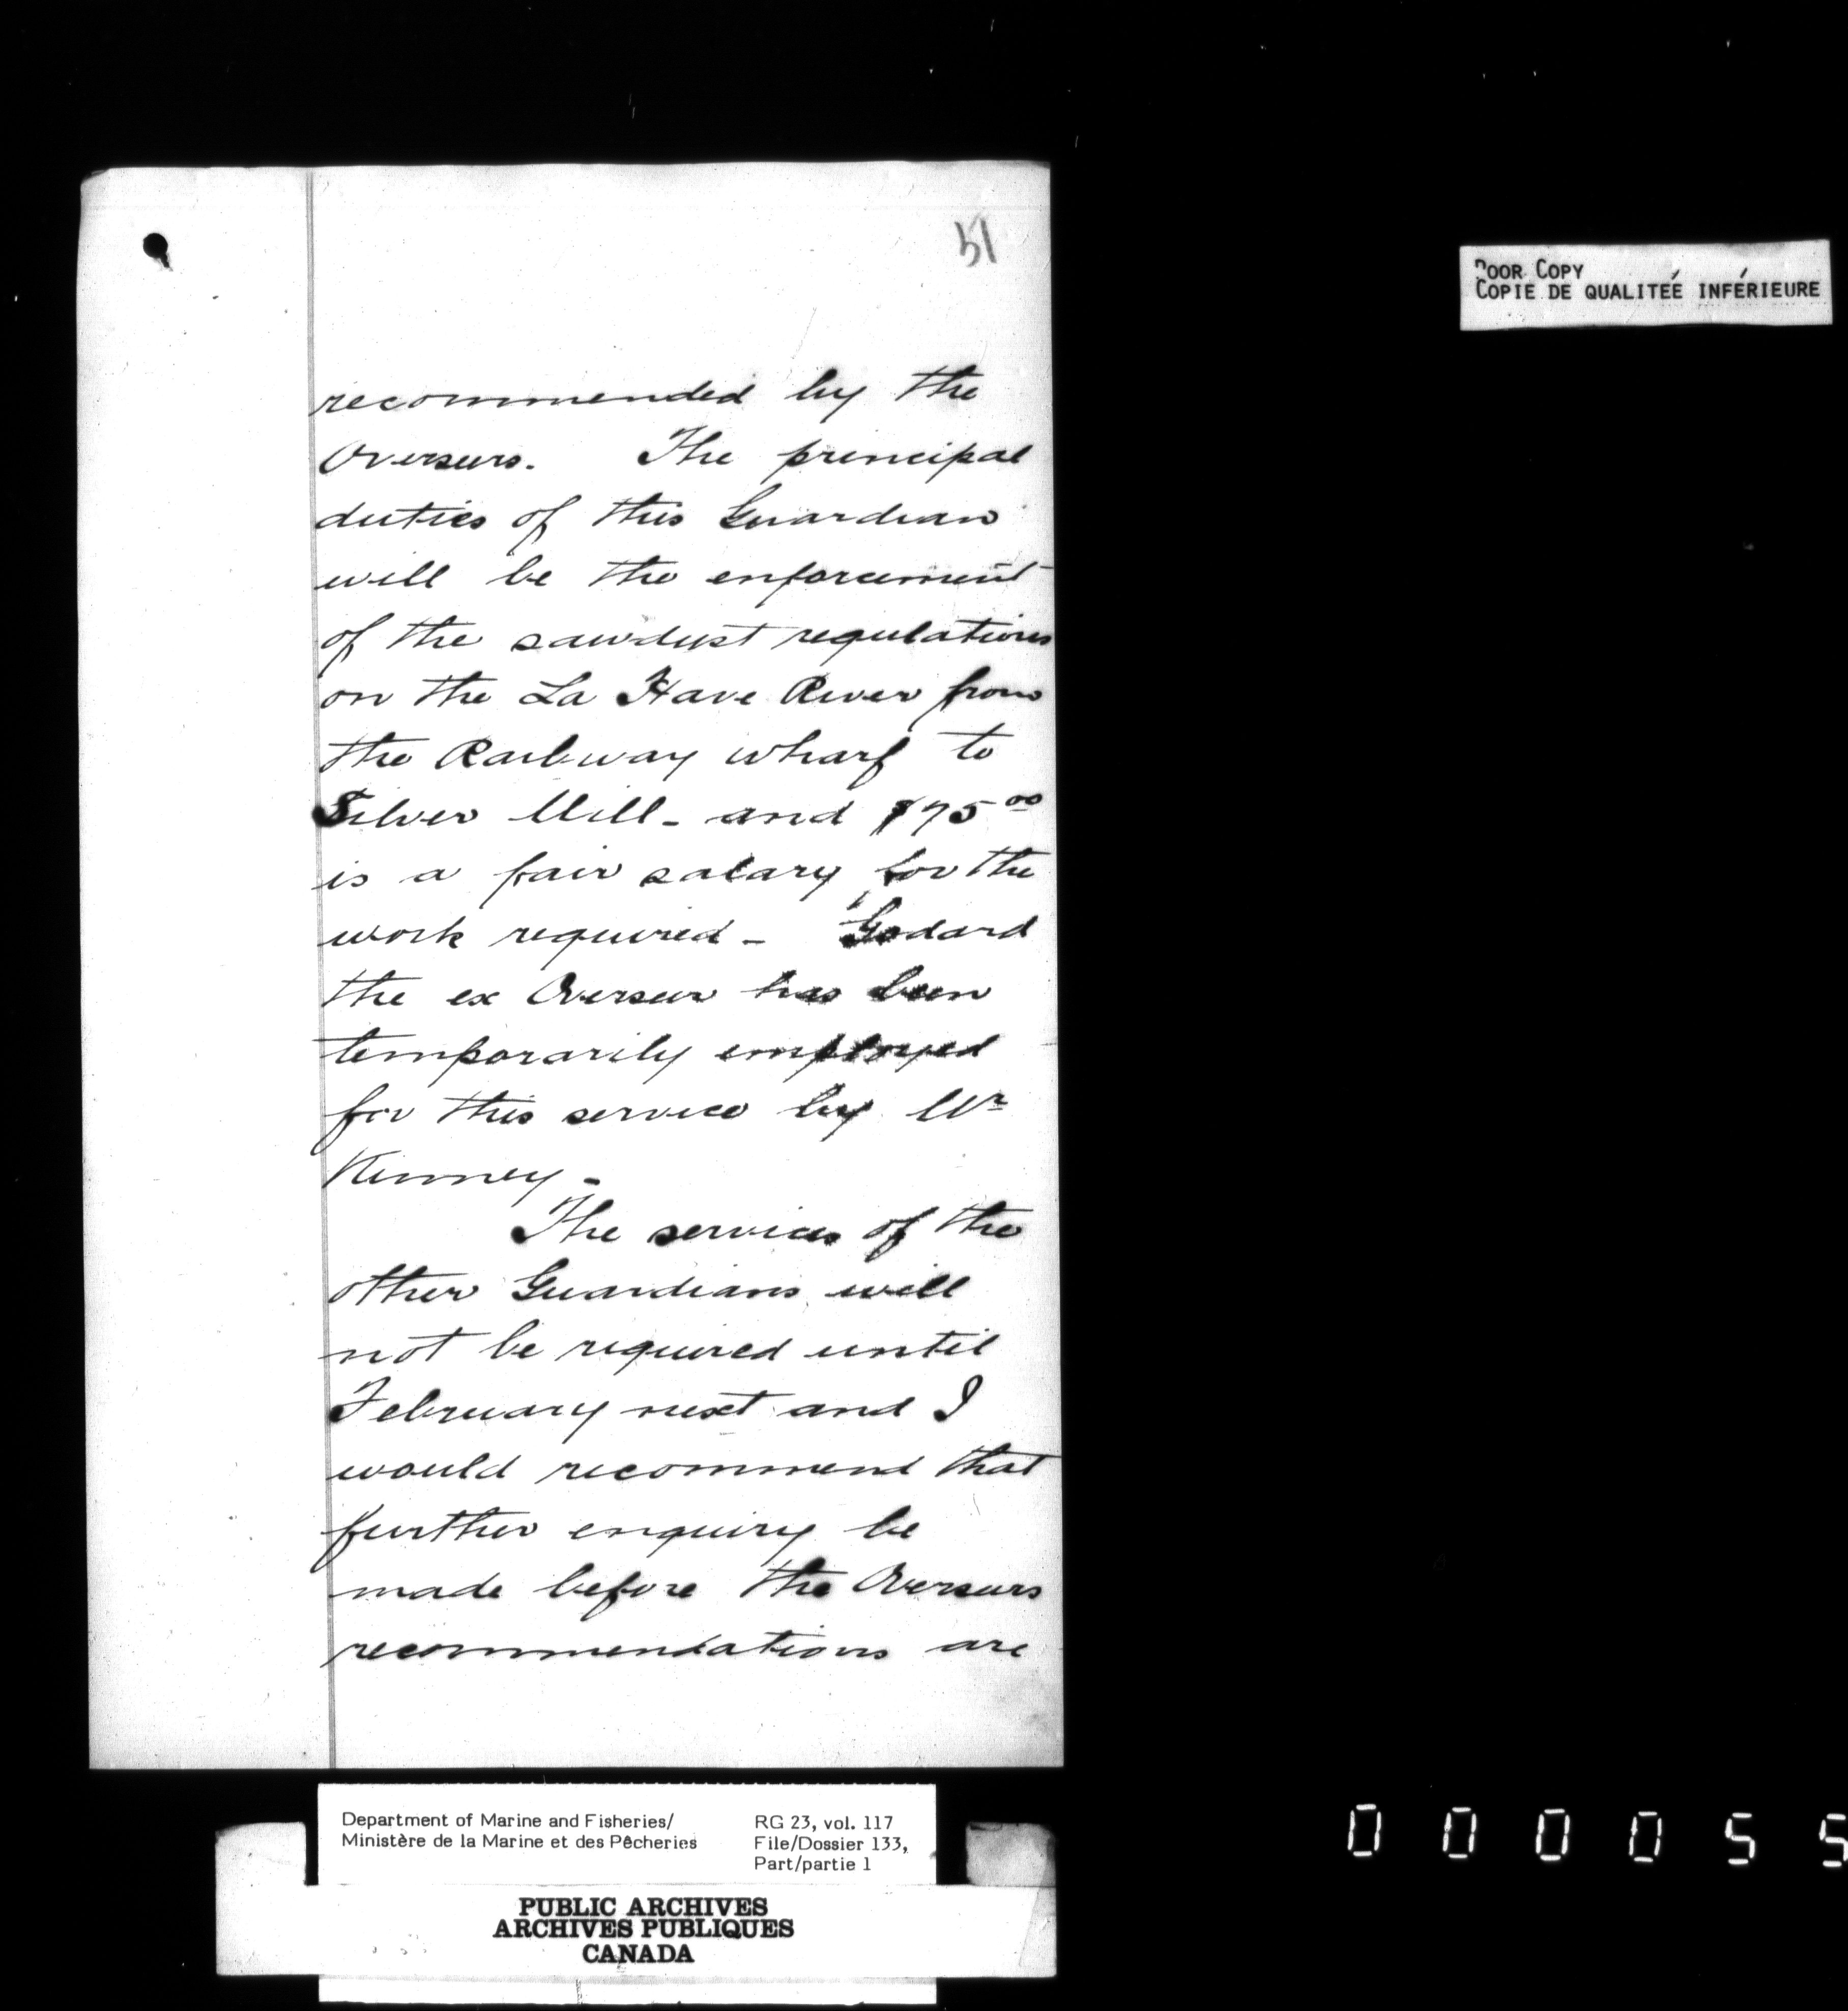 51
POOR COPY
COPIE DE QUALITEÉ INFÉRIEURE
recommended by the
Overseers. The principal
duties of this Guardian
will be the enforcement
of the sawdust regulations
on the La Have River from
the Railway wharf to
Silver Mill - and $75 00
is a fair salary for the
work required - Godard
the ex Overseer has been
temporarily employed
for this service by Mr
Kinney -
The services of the
other Guardians will
not be required until
February next and I
would recommend that
further enquiry be
made before the Overseers
recommendations are
Department of Marine and Fisheries/
Ministère de la Marine et des Pêcheries
RG 23, vol. 117
File/Dossier 133,
Part/partie 1
PUBLIC ARCHIVES
ARCHIVES PUBLIQUES
CANADA
000055